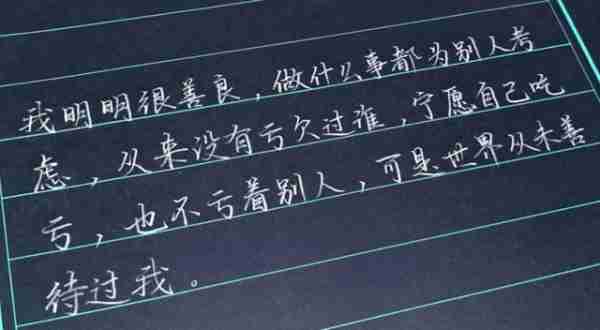 我明明很善良，做什么事都为别人考
虑，从来没有亏欠过谁，宁愿自己吃
亏，也不亏着别人，可是世界从未善
待过我。